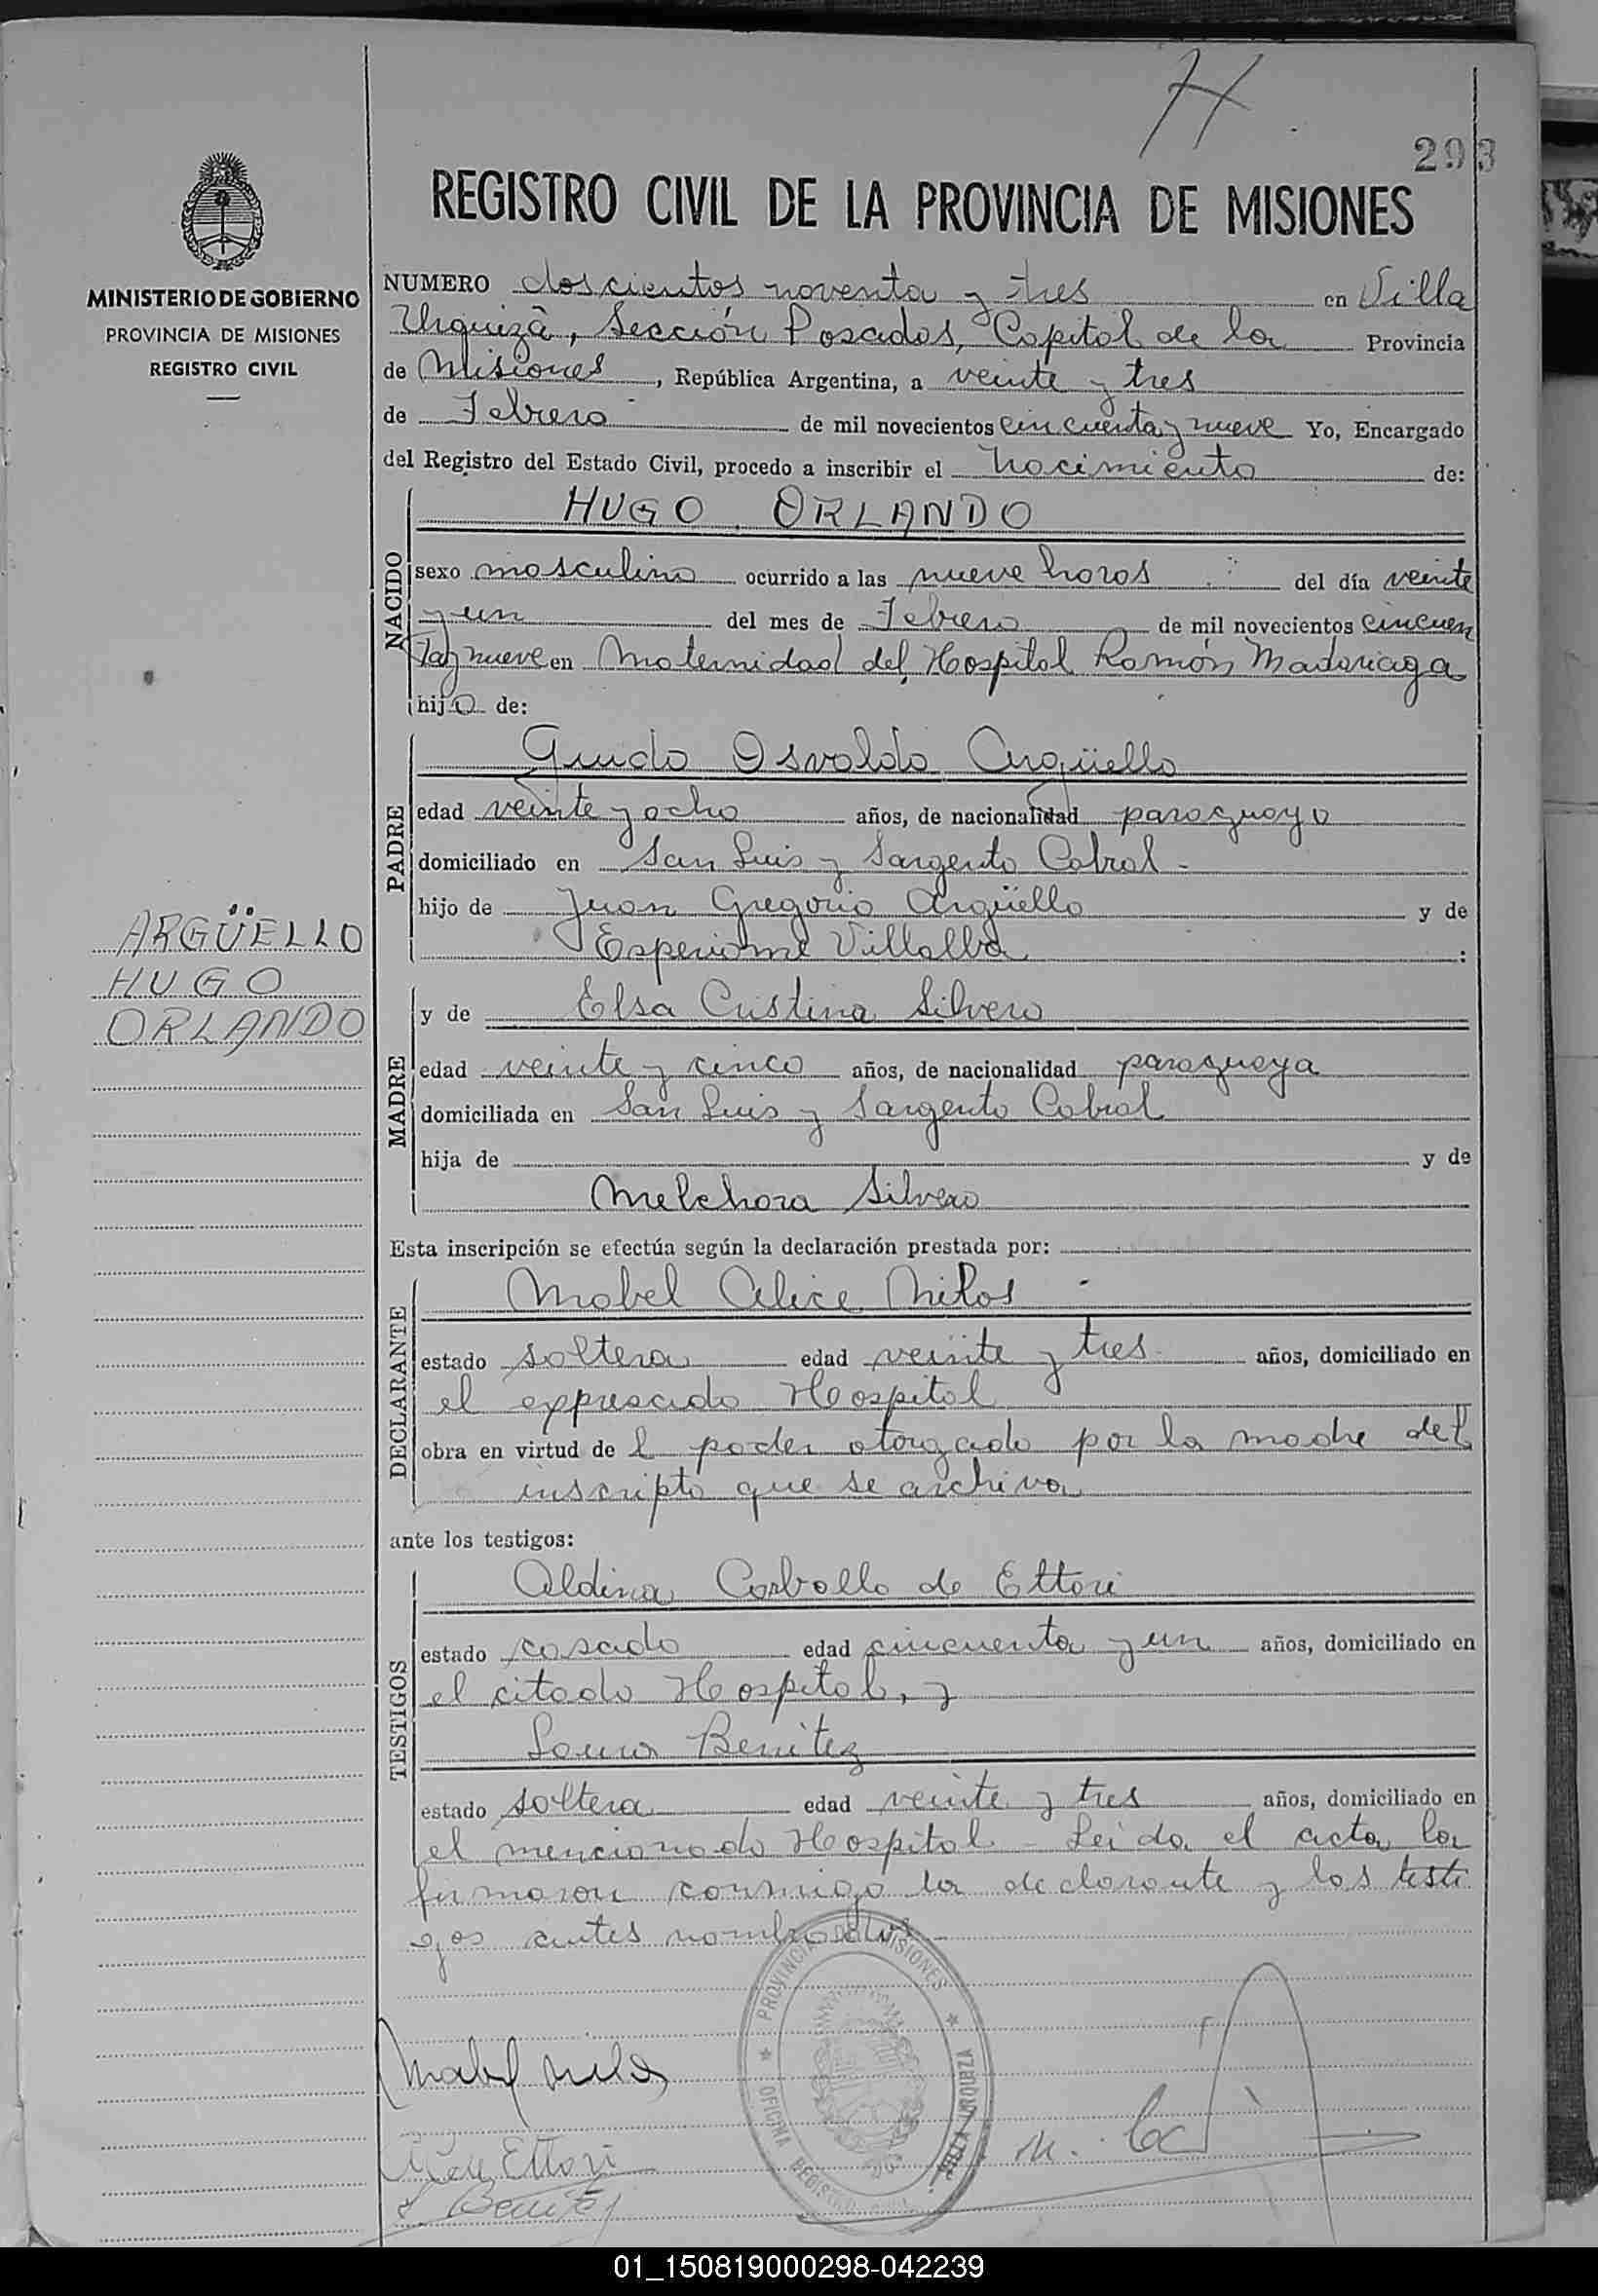 H
293
REGISTRO CIVIL DE LA PROVINCIA DE MISIONES
MINISTERIO DE GOBIERNO
PROVINCIA DE MISIONES
REGISTRO CIVIL
NUMERO doscientos noventa y tres en Villa
Urquiza, Sección Posadas, Capital de la Provincia
de Misiones, República Argentina, a veinte y tres
de Febrero de mil novecientos cincuenta y nueve Yo, Encargado
del Registro del Estado Civil, procedo a inscribir el nacimiento de:
NACIDO
HUGO ORLANDO
sexo masculino ocurrido a las nueve horas del día veinte
y un del mes de Febrero de mil novecientos cincuen
ta y nueve en Maternidad del Hospital Ramón Madariaga
hijo de:
PADRE
Guido Osvaldo Argüello
edad veinte y ocho años, de nacionalidad paraguayo
domiciliado en San Luis y Sargento Cabral -
hijo de Juan Gregorio Argüello y de
Villalba :
ARGÜELLO
HUGO
ORLANDO
MADRE
y de Elsa Cristina Silvero
edad veinte y cinco años, de nacionalidad paraguaya
domiciliada en San Luis y Sargento Cabral
hija de y de
Melchora Silvero
Esta inscripción se efectúa según la declaración prestada por:
DECLARANTE
Mabel Alice
estado soltera edad veinte y tres años, domiciliado en
el expresado Hospital
obra en virtud de l poder otorgado por la madre del
inscripto que se archiva
ante los testigos:
TESTIGOS
Aldina Carballo de Ettori
estado casada edad cincuenta y un años, domiciliado en
el citado Hospital, y
Benitez
estado soltera edad veinte y tres años, domiciliado en
el mencionado Hospital - Leida el acta la
firmaron conmigo la declarante y los testi
gos antes nombrados -
PROVINCIA DE MISIONES
OFICINA REGISTRO
VILLA URQUIZA
Mabel
Ettori
Benitez
01_150819000298-042239